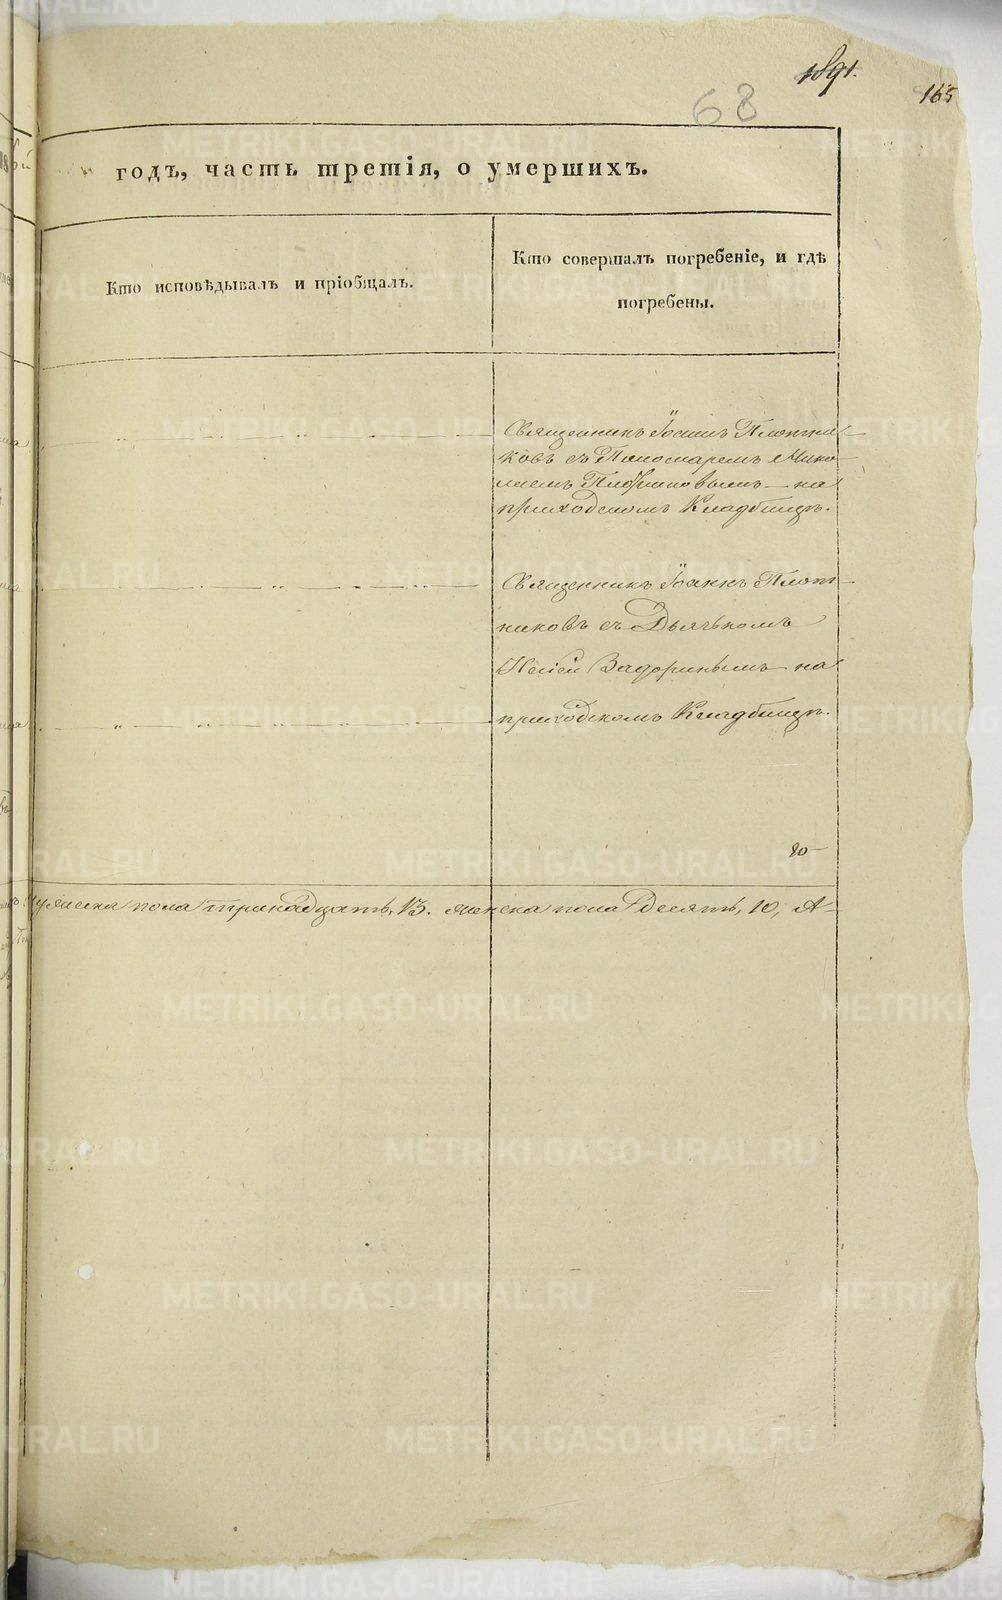 1891.
165
68
годъ, часть третія, о умершихъ.
Кто исповѣдывалъ и пріобщалъ.
Кто совершалъ погребеніе, и гдѣ
погребены.
Священникъ Іоаннъ Плотни
ковъ съ Пономаремъ Нико
лаемъ на
приходскомъ Кладбищѣ.
Священникъ Іоаннъ Плот
никовъ съ Дьячькомъ
Задоринымъ на
приходскомъ Кладбищѣ.
мужеска пола тринадцать, 13. женска пола десять, 10, А
METRIKI.GASO-URAL.RU